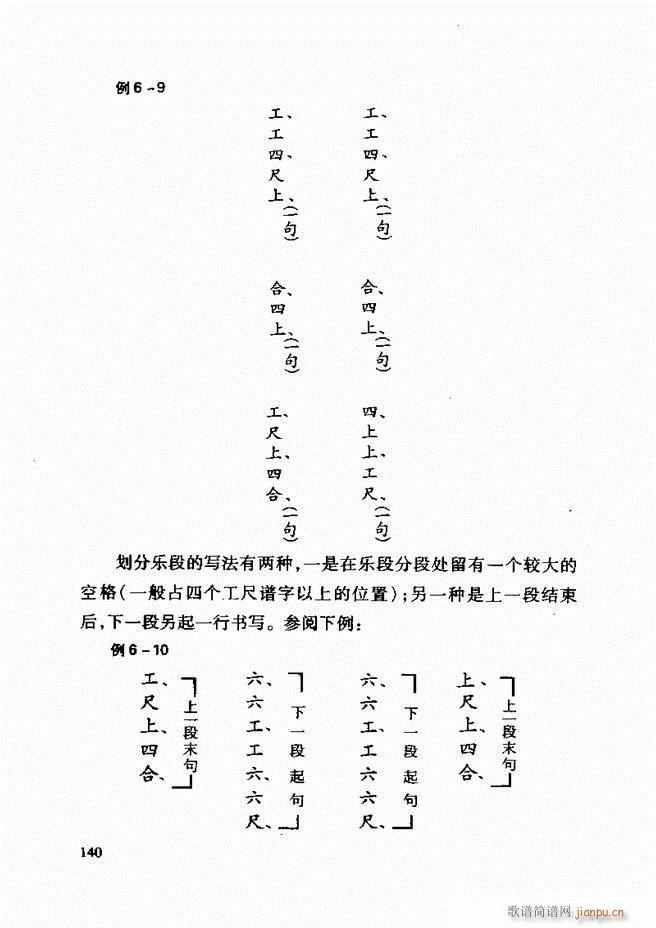 例6－9
工、
工
四、
尺
上、(一句)
合、
四
上、(一句)
四、
上
上、
工
尺、(一句)
工、
工
四、
尺
上、(一句)
合、
四
上、(一句)
工、
尺
上、
四
合、(一句)
划分乐段的写法有两种,一是在乐段分段处留有一个较大的
空格(一般占四个工尺谱字以上的位置);另一种是上一段结束
后,下一段另起一行书写。参阅下例:
例6－10
上、尺上、四合、
上一段末句
六、六工、工六、六尺、
下一段起句
六、六工、工六、六尺、
下一段起句
工、尺上、四合、
上一段末句
140
歌谱简谱网 jianpu.cn